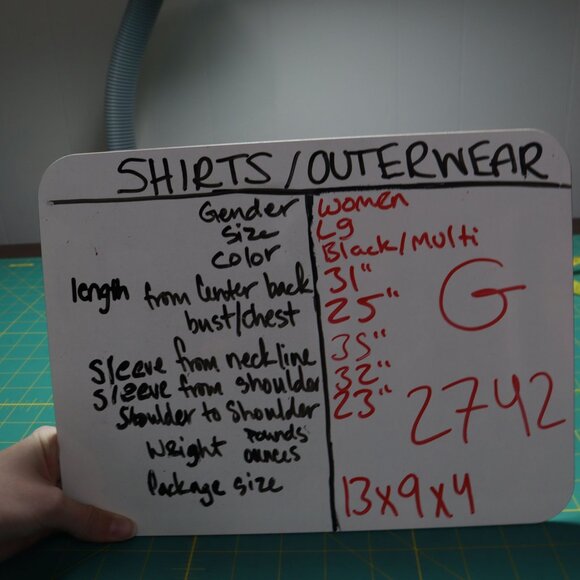 SHIRTS/OUTERWEAR
Gender women
size Lg
color Black/Multi
length from Center back 31"
bust/chest 25"
G
Sleeve from neckline 35"
Sleeve from shoulder 32"
Shoulder to Shoulder 23"
2742
Weight Pounds
ounces
Package size 13x9x4